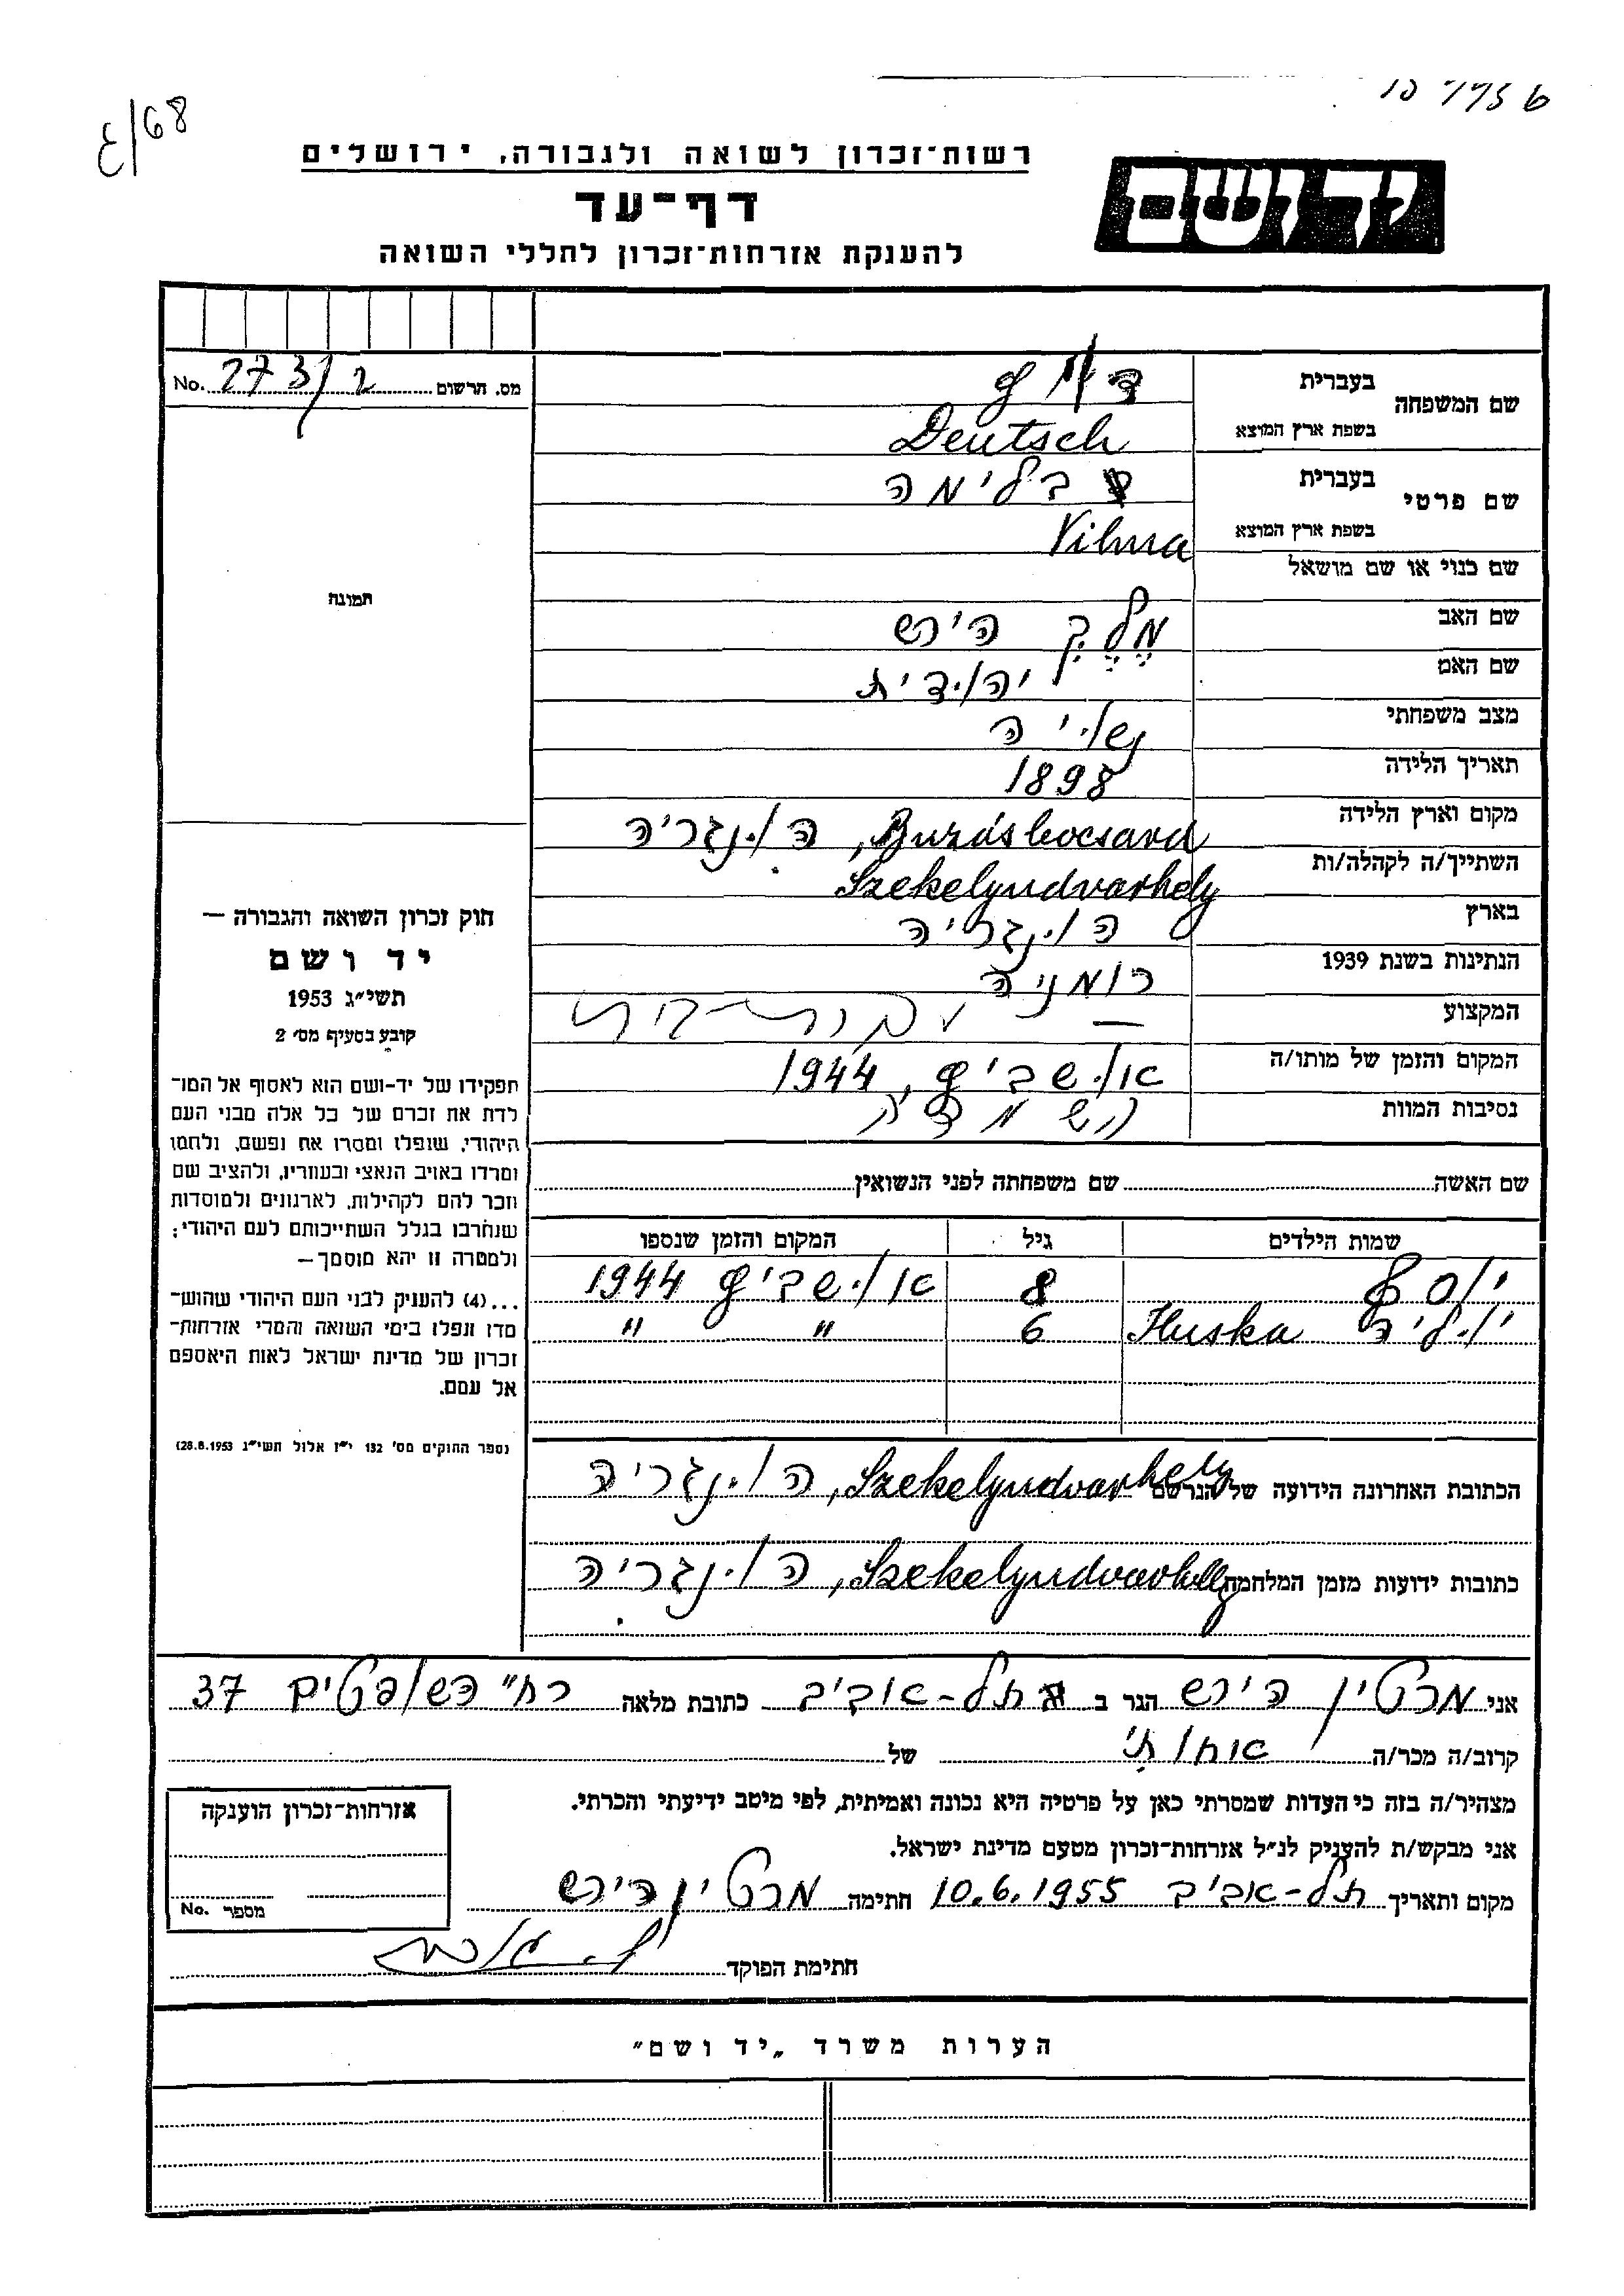 ε/68
רשות־זכרון לשואה ולגבורה, ירושלים
יד ושם
דף־עד
להענקת אזרחות־זכרון לחללי השואה
מס. הרשום 273/2 No.
תמונה
חוק זכרון השואה והגבורה —
יד ושם
תשי״ג 1953
קובע בסעיף מס׳ 2
תפקידו של יד-ושם הוא לאסוף אל המו־
לדת את זכרם של כל אלה מבני העם
היהודי, שנפלו ומסרו את נפשם, נלחמו
ומרדו באויב הנאצי ובעוזריו, ולהציב שם
וזכר להם לקהילות, לארגונים ולמוסדות
שנחרבו בגלל השתייכותם לעם היהודי;
ולמטרה זו יהא מוסמך—
...(4) להעניק לבני העם היהודי שהוש־
מדו ונפלו בימי השואה והמרי אזרחות־
זכרון של מדינת ישראל לאות היאספם
אל עמם.
(ספר החוקים מס׳ 132 י״ז אלול תשי״ג 28.8.1953)
שם המשפחה בעברית
בשפת ארץ המוצא Deutsch
שם פרטי בעברית בלימה
בשפת ארץ המוצא Vilma
שם כנוי או שם מושאל
שם האב מֶלֶךְ הירש
שם האם יהודית
מצב משפחתי נשויה
תאריך הלידה 1898
מקום וארץ הלידה Buzásbocsard, הונגריה
השתייך/ה לקהלה/ות Szekelyudvarhely
בארץ הונגריה
הנתינות בשנת 1939 רומניה
המקצוע —
המקום והזמן של מותו/ה אושביץ, 1944
נסיבות המוות השמדה
שם האשה שם משפחתה לפני הנשואין
שמות הילדים גיל המקום והזמן שנספו
יוסף 8 אושביץ 1944
יוליה Iluska 6 " "
הכתובת האחרונה הידועה של הנרשם Szekelyudvarhely, הונגריה
כתובות ידועות מזמן המלחמה Szekelyudvarhely, הונגריה
אני מרטין הירש הגר ב תל-אביב כתובת מלאה רח' השופטים 37
קרוב/ה מכר/ה אחותי של
מצהיר/ה בזה כי העדות שמסרתי כאן על פרטיה היא נכונה ואמיתית, לפי מיטב ידיעתי והכרתי.
אני מבקש/ת להעניק לנ״ל אזרחות־זכרון מטעם מדינת ישראל.
מקום ותאריך תל-אביב 10.6.1955 חתימה מרטין הירש
חתימת הפוקד
אזרחות־זכרון הוענקה
מספר No.
הערות משרד „יד ושם"